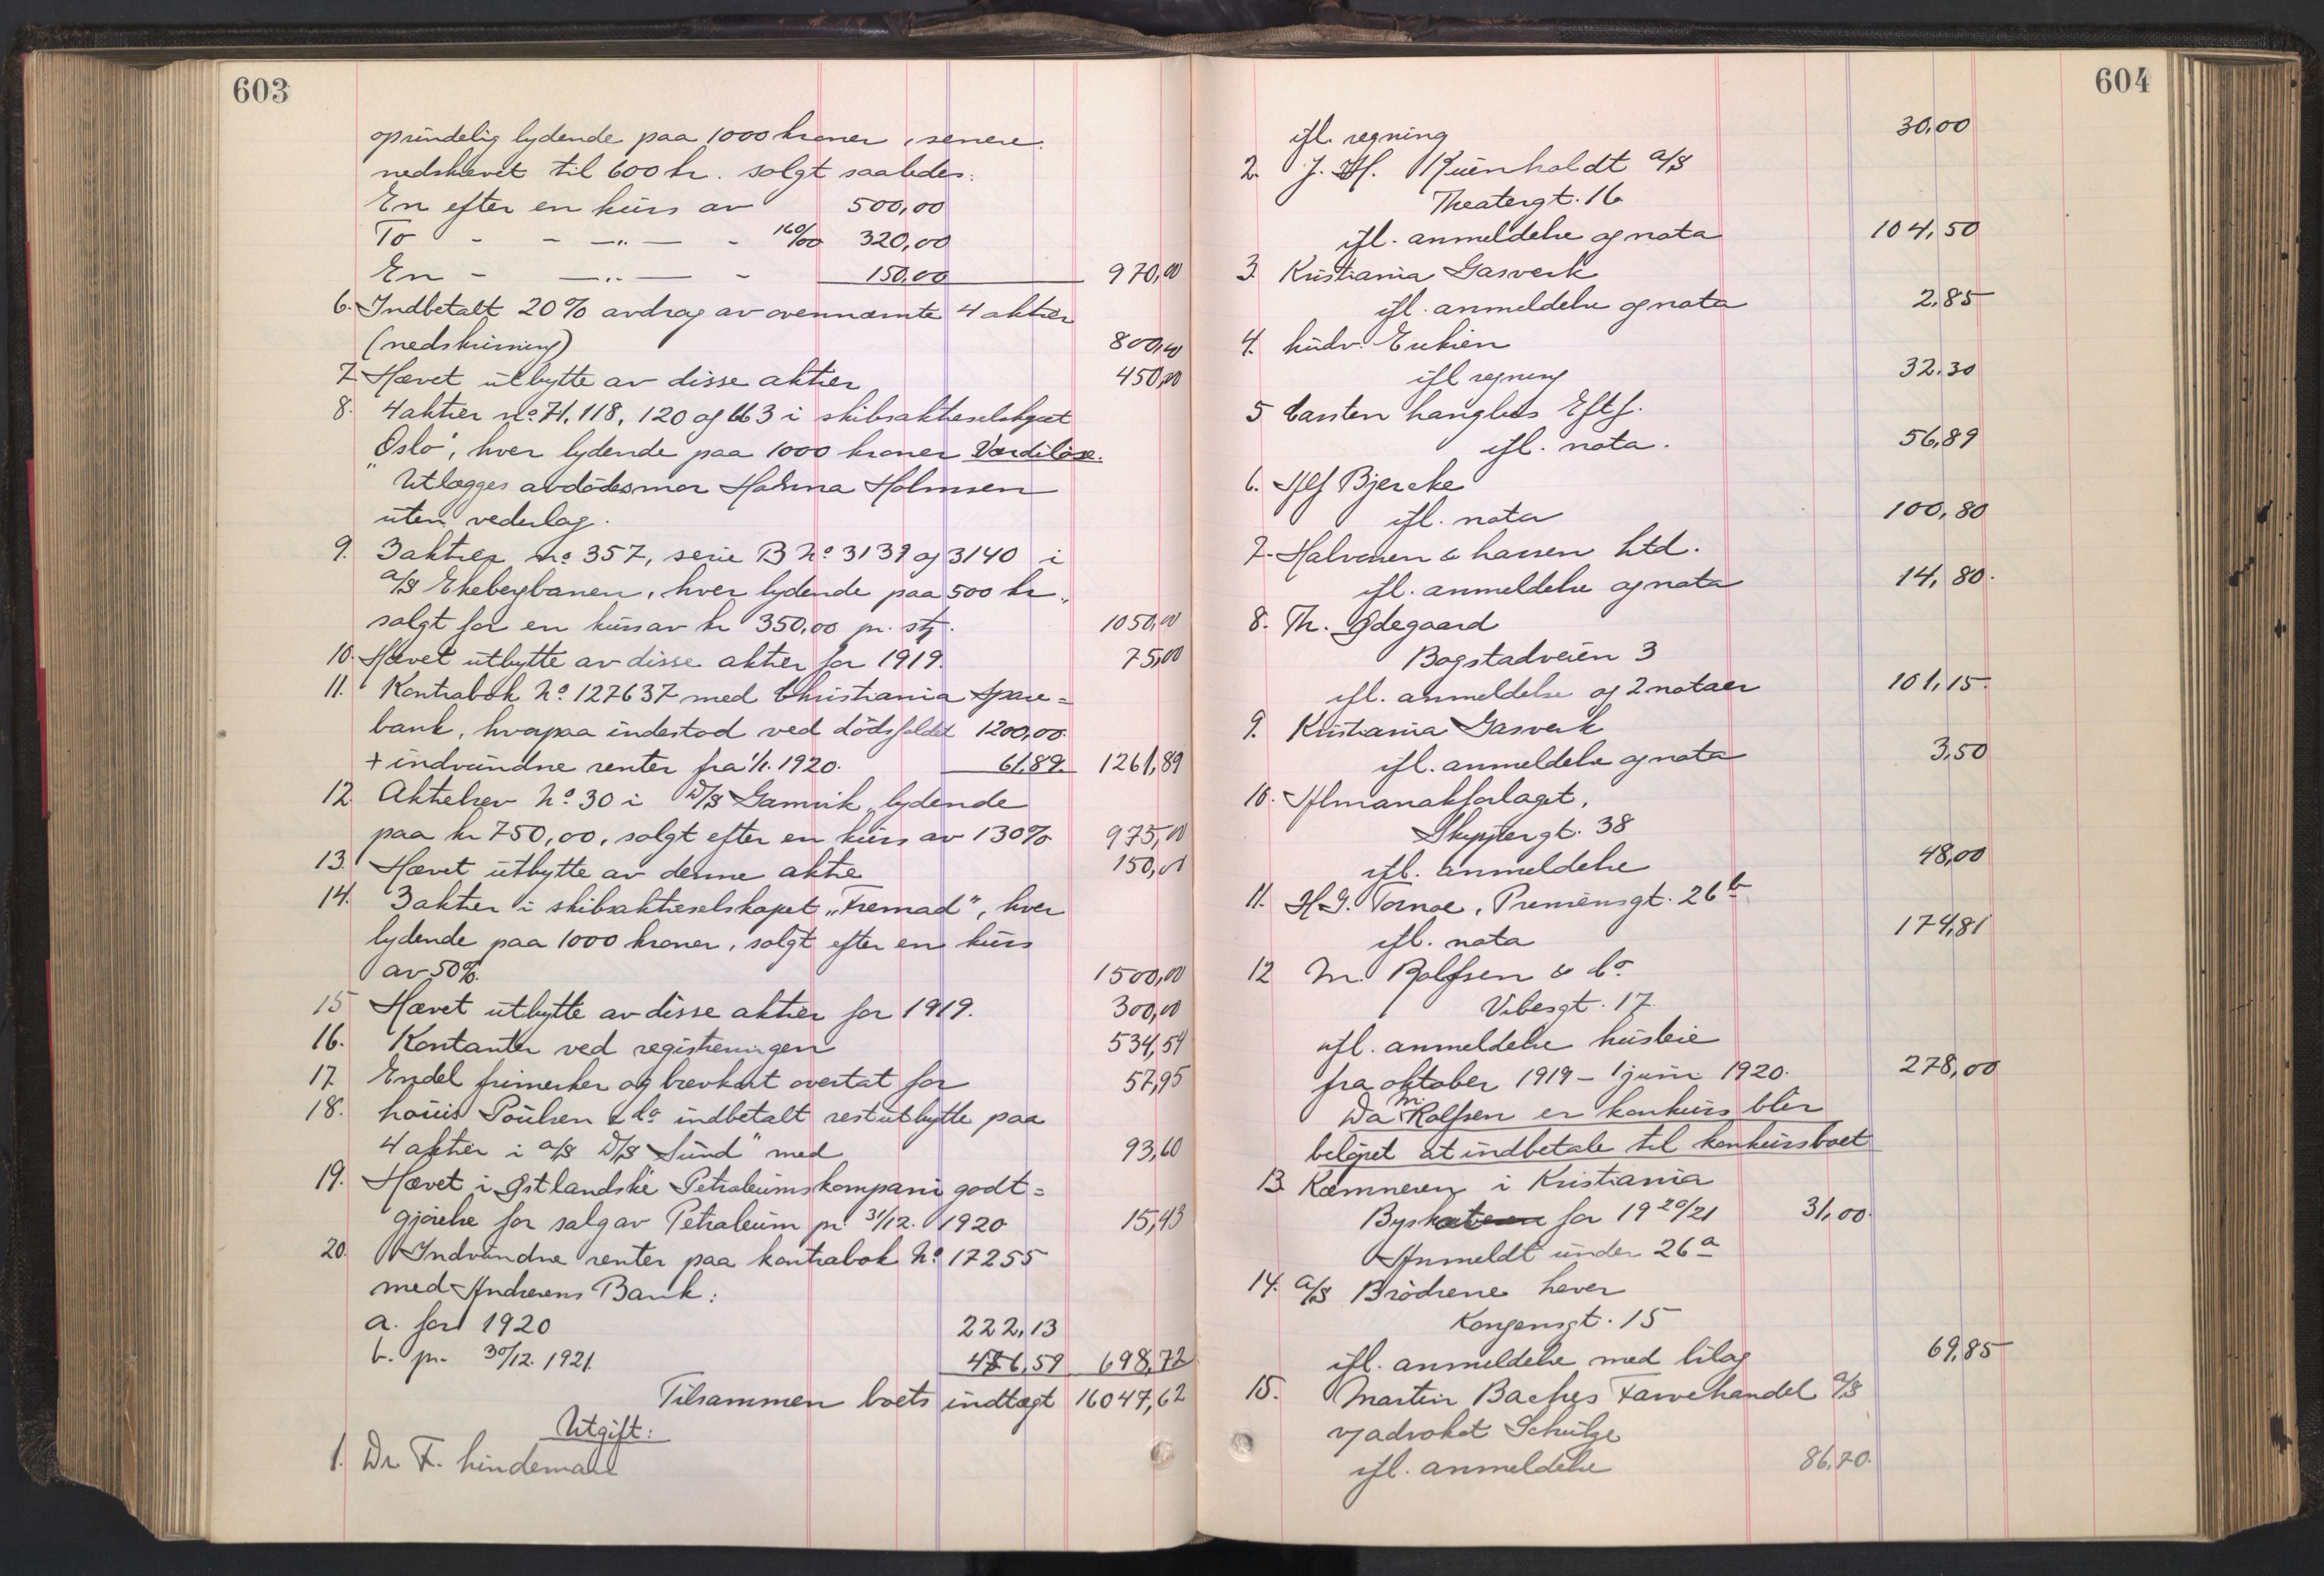 603
oprindelig lydende paa 1000 kroner, senere
nedskrevet til 600 kr. solgt saaledes:
En efter en kurs av 500,00
To - - —„— - 160/00 320,00
En - —„— - 150,00 970,00
6. Indbetalt 20% avdrag av ovennævnte 4 aktier
(nedskrivning) 800,00
7. Hævet utbytte av disse aktier 450,00
8. 4 aktier no 71, 118, 120 og 663 i skibsaktieselskapet
„Oslo", hver lydende paa 1000 kroner Værdiløse.
Utlægges avdødes mor Halvna Holmsen
uten vederlag.
9. 3 aktier no 357, serie B No 3139 og 3140 i
a/s Ekebergbanen, hver lydende paa 500 kr.,
solgt for en kurs av kr 350,00 pr. stk. 1050,00
10. Hævet utbytte av disse aktier for 1919. 75,00
11. Kontrabok No 127637 med Christiania Spare=
bank, hvorpaa indestod ved dödsfaldet 1200,00.
+ indvundne renter fra 1/1. 1920. 61,89. 1261,89
12. Aktiebrev No 30 i D/S Gamvik, lydende
paa kr 750,00, solgt efter en kurs av 130% 975,00
13. Hævet utbytte av denne aktie 150,00
14. 3 aktier i skibsaktieselskapet „Fremad", hver
lydende paa 1000 kroner, solgt efter en kurs
av 50%. 1500,00
15 Hævet utbytte av disse aktier for 1919. 300,00
16. Kontanter ved registreringen 534,54
17. Endel frimerker og brevkort overtat for 57,95
18. Louis Poulsen & Co indbetalt restutbytte paa
4 aktier i a/s D/S „Sund" med 93,60
19. Hævet i Østlandske Petroleumskompani godt=
gjørelse for salg av Petroleum pr. 31/12. 1920 15,43
20. Indvundne renter paa kontrabok No 17255
med Andresens Bank:
a. for 1920 222,13
b. pr. 30/12. 1921. 476,59 698,72
Tilsammen boets indtægt 16047,62
Utgift:
1. Dr. F. Lindeman
604
ifl. regning 30,00
2. J. H. Kuenholdt a/s
Theatergt. 16
ifl. anmeldelse og nota 104,50
3. Kristiania Gasverk
ifl. anmeldelse og nota 2,85
4. Ludv. Eriksen
ifl regning 32.30
5 Carsten Langlies Eftf.
ifl. nota. 56,89
6. Alf Bjercke
ifl. nota 100,80
7. Halvorsen & Larsen Ltd.
ifl. anmeldelse og nota 14,80.
8. Th. Ødegaard
Bogstadveien 3
ifl. anmeldelse og 2 notaer 101,15.
9. Kristiania Gasverk
ifl. anmeldelse og nota 3,50
10. Almanakforlaget,
Skippergt. 38
ifl. anmeldelse 48,00
11. H. G. Tornøe, Premiersgt. 26b
ifl. nota 174,81
12 M. Rolfsen & Co
Vibesgt. 17.
ifl. anmeldelse husleie
fra oktober 1919 - 1 juni 1920. 278,00
Da M. Rolfsen er konkurs blir
beløpet at indbetale til konkursboet
13. Kæmneren i Kristiania
Byskat for 1920/21 31,00.
Anmeldt under 26a
14. a/s Brødrene Lever
Kongensgt. 15
ifl. anmeldelse med bilag 69,85
15. Martin Baches Farvehandel a/s
v/advokat Schulze
ifl. anmeldelse 86,20.